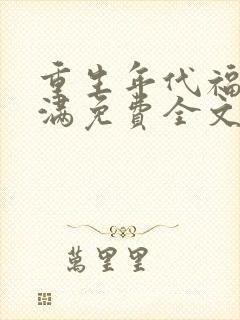 重生年代福
满免費全文
萬里里